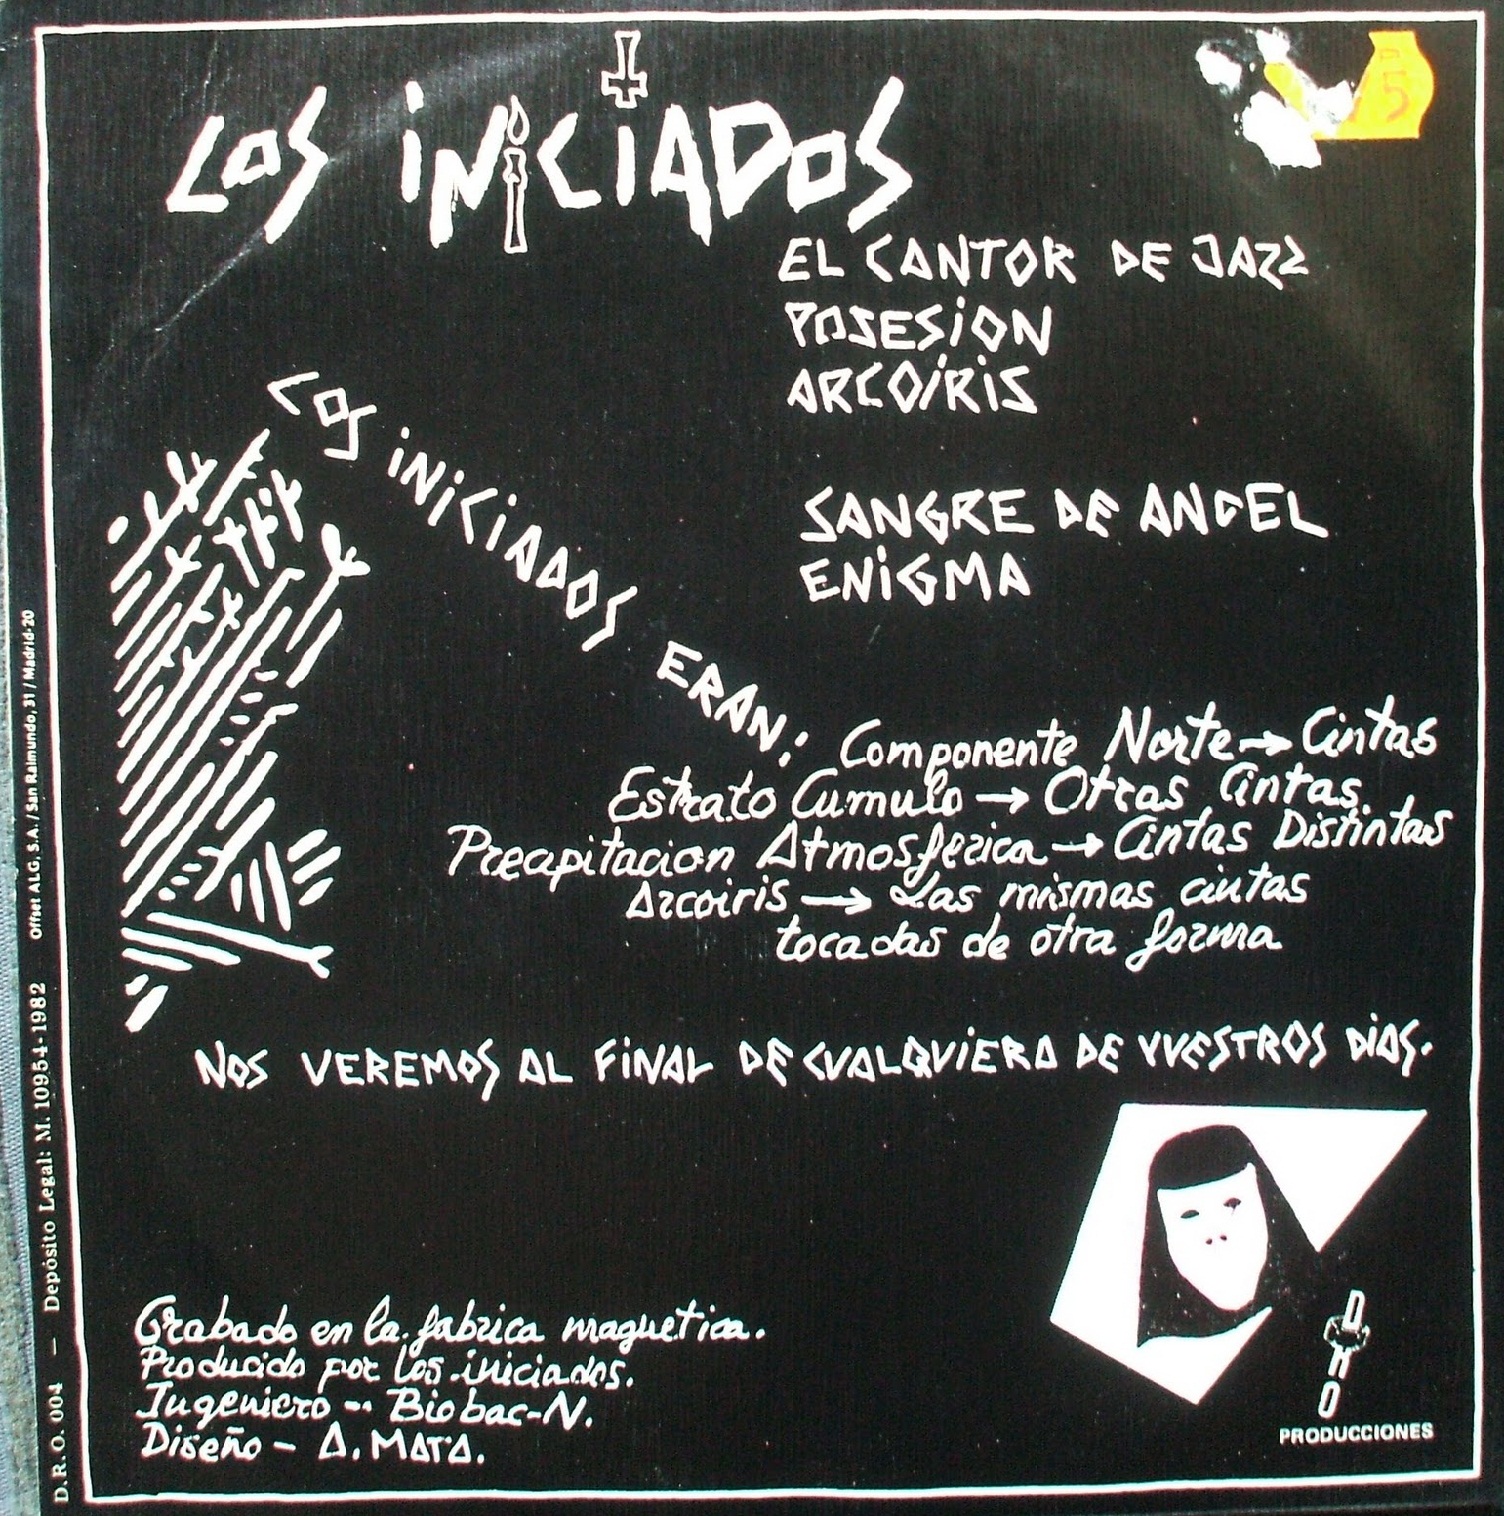 LOS INICIADOS
EL CANTOR DE JAZZ
POSESION
ARCOIRIS
SANGRE DE ANGEL
ENIGMA
LOS INICIADOS ERAN:
Componente Norte → Cintas
Estrato Cumulo → Otras Cintas.
Precipitacion Atmosferica → Cintas Distintas
Arcoiris → Las mismas cintas
tocadas de otra forma
NOS VEREMOS AL FINAL DE CUALQUIERA DE VUESTROS DIAS.
Grabado en la fabrica magnetica.
Producido por los iniciados.
Ingeniero -- Biobac-N.
Diseño - A. MATA.
PRODUCCIONES
D.R.O. 004 — Depósito Legal: M. 10954-1982 Offset ALG, S.A. / San Raimundo, 31 / Madrid-20